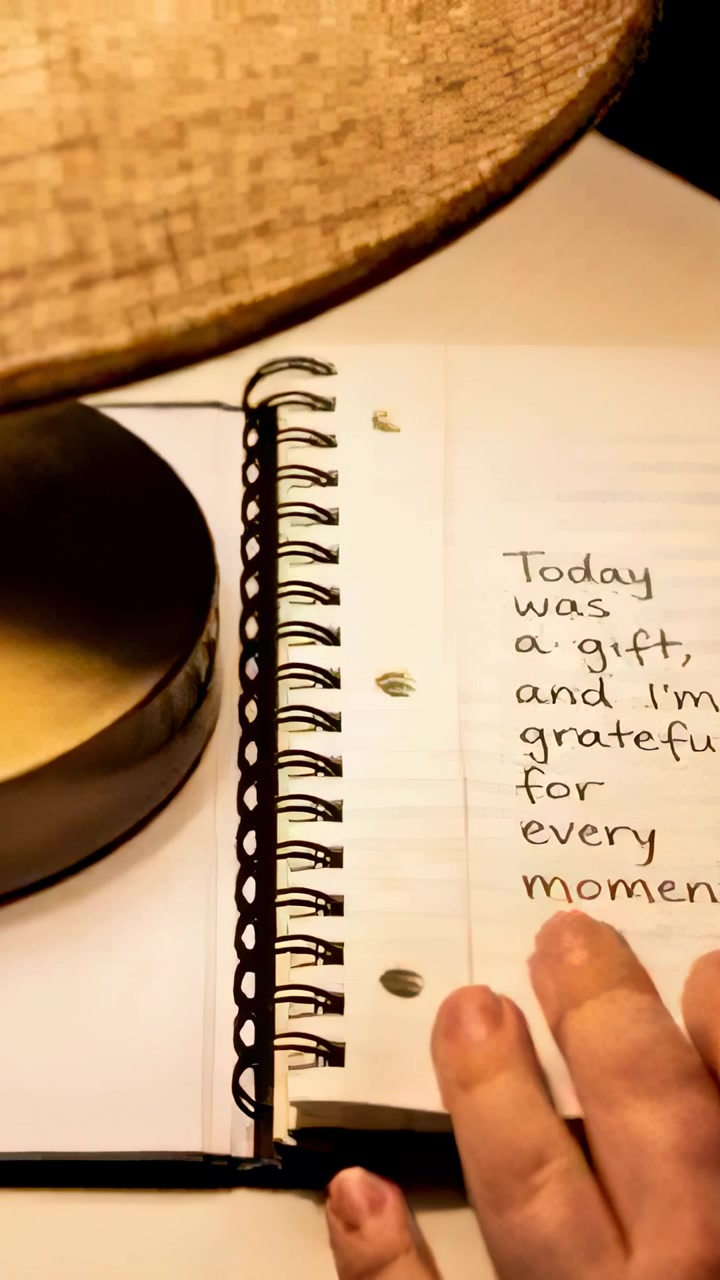 Today
was
a gift,
and I'm
gratefu
for
every
momen